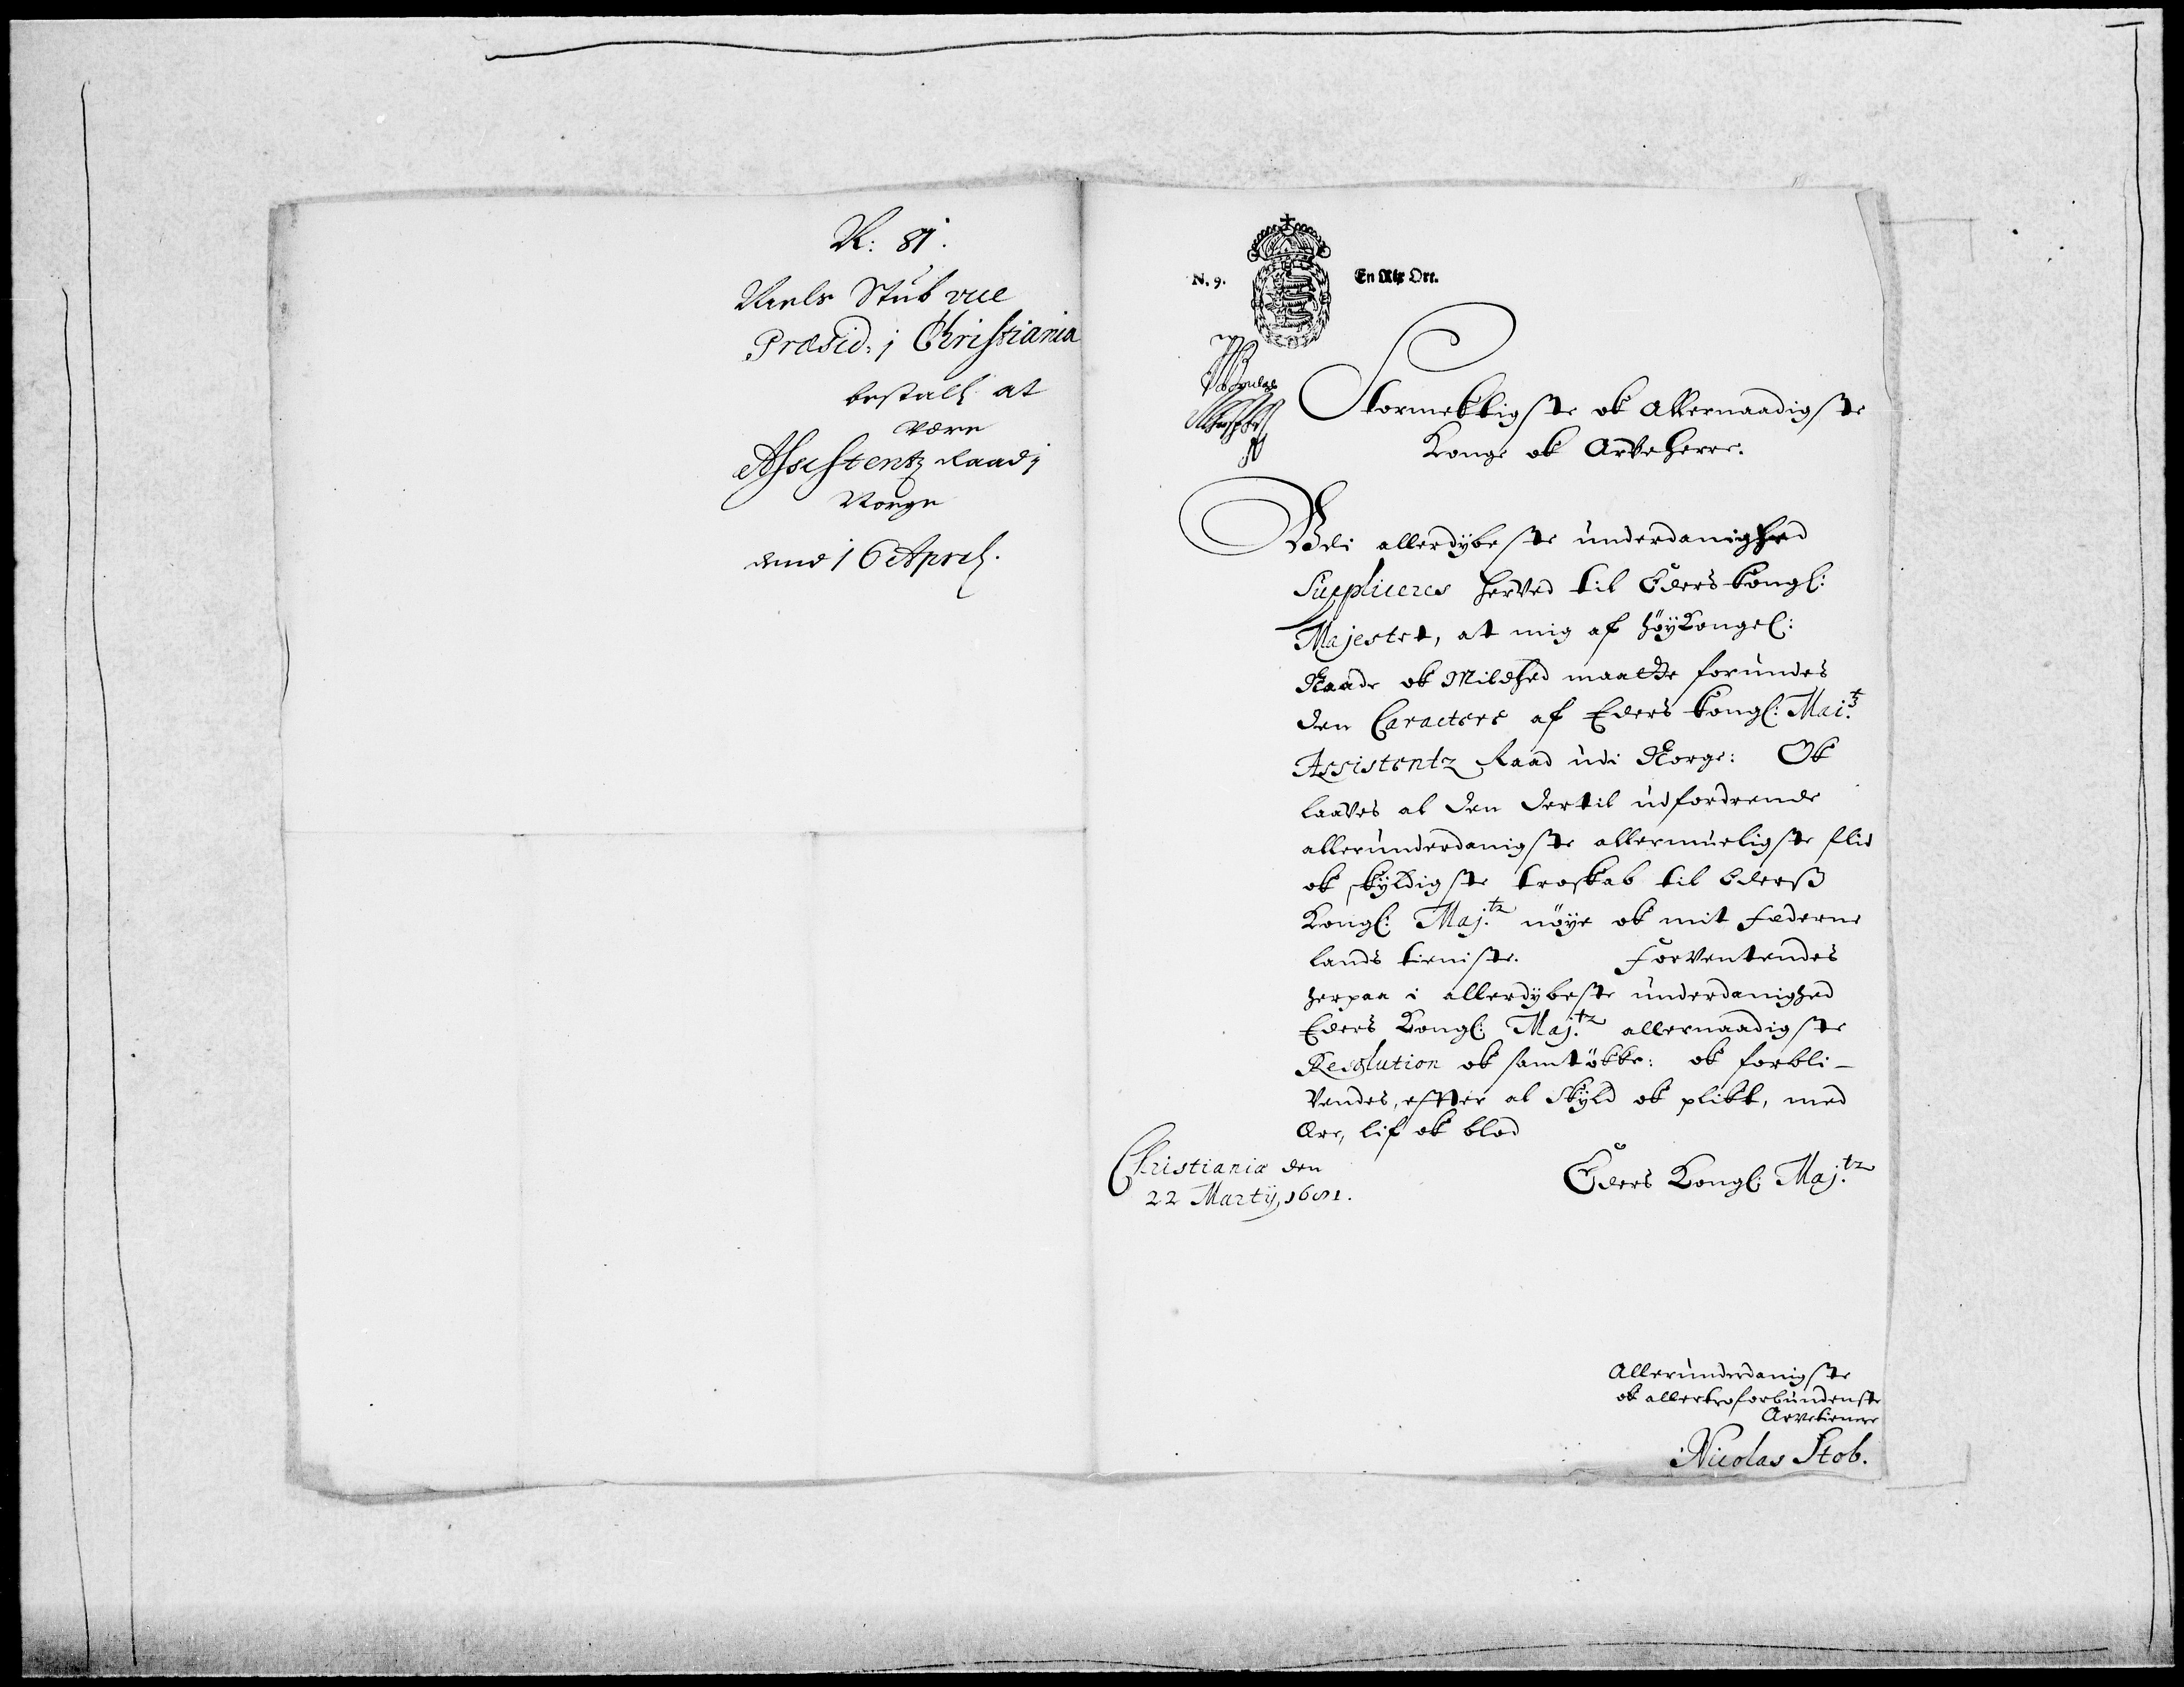 N: 81.
Niels Stub vice
Præsid: i Christiania
bestall: at
være
Assistentz Raad i
Norge
dend 16 April.
N. 9.
En Rix Ort.
Stormektigste ok Allernaadigste
Konge ok Arveherre.
Udi allerdybeste underdanighed
Suppliceres herved til Eders kongl:
Majestet, at mig af høyKongel:
Naade ok Mildhed maatte forundes
den Caractere af Eders kongl: Mai.tz
Assistentz Raad udi Norge: Ok
laaves al den dertil udfordrende
allerunderdanigste allermueligste flid
ok skyldigste troskab til Ederß
Kongl: Maj.tz nøye ok mit Fæderne
lands tieniste. Forventendes
herpaa i allerdybeste underdanighed
Eders Kongl: Maj.tz allernaadigste
Resolution ok samtøkke: ok forbli-
vendes, effter al Skyld ok plikt, med
Ære, lif ok blod
Christiania den
22 Martij, 1681.
Eders Kongl: Maj.tz
Allerunderdanigste
ok allertroforbundenste
Arvetienere
Nicolas Stob.